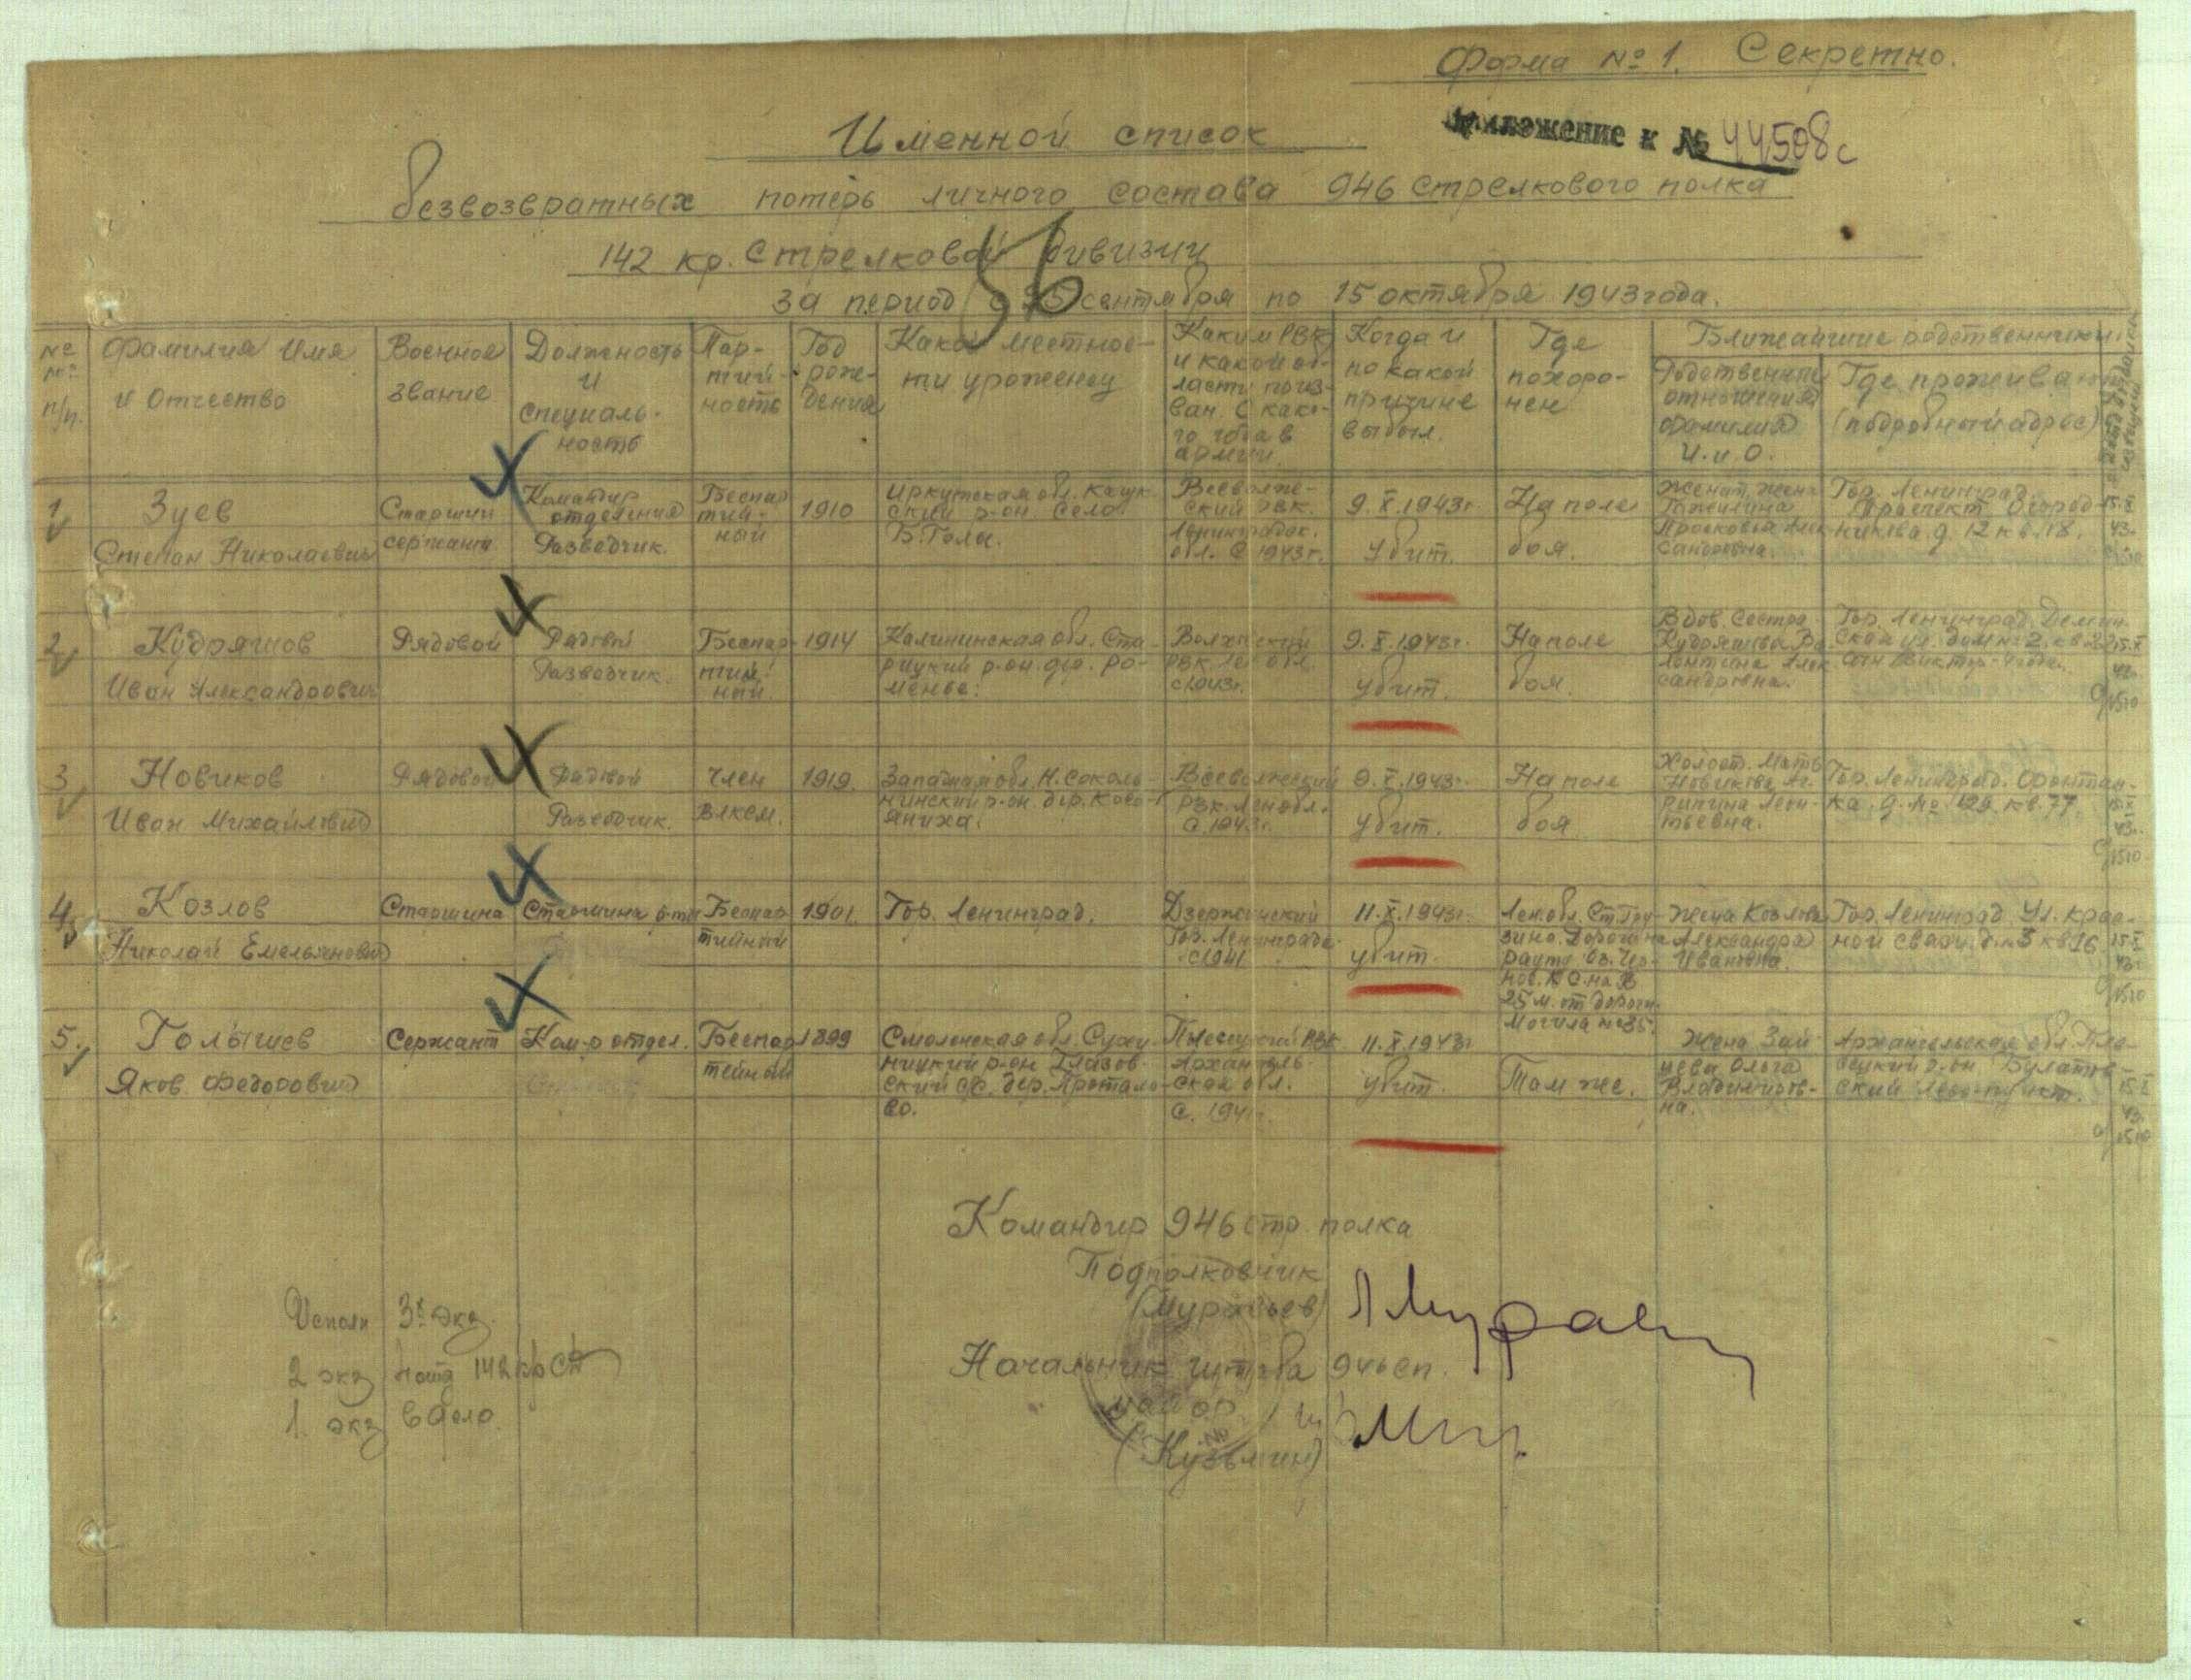 Форма № 1. Секретно.
Приложение к № 44508с
Именной список
безвозвратных потерь личного состава 946 стрелкового полка
142 кр. Стрелковой дивизии
56
за период с 25 сентября по 15 октября 1943 года.
№№ п/п.
Фамилия Имя и Отчество
Военное звание
Должность и специальность
Партийность
Год рождения
Какой местности уроженец
Каким РВК и какой области призван. С какого года в армии
Когда и по какой причине выбыл.
Где похоронен
Ближайшие родственники
Родственные отношения Фамилия И. и О.
Где проживают (подробный адрес)
1 Зуев Степан Николаевич
Старший сержант
Командир отделения Разведчик.
Беспартийный
1910
Иркутская обл. р-он. Село
Всеволожский РВК. Ленинградск. обл. С 1943 г.
9.X.1943 г. убит.
На поле боя.
Женат. жена Прасковья Александровна.
Гор. Ленинград Проспект Огородникова д. 12 кв. 18.
2 Кудряшов Иван Александрович
Рядовой
Рядовой Разведчик.
Беспартийный.
1914
Калининская обл. Старицкий р-он. дер.
Волховский РВК Лен обл. с 1943 г.
9.X.1943 г. убит.
На поле боя.
Вдов. Сестра Кудряшова Валентина Александровна.
Гор. Ленинград. ул. дом № 2. кв. 22 Сын Виктор
3 Новиков Иван Михайлович
Рядовой
Рядовой Разведчик.
Член ВЛКСМ.
1919.
Западная обл. Н. Сокольнический р-он. дер.
Всеволожский РВК. Лен обл. С 1943 г.
9.X.1943 г. убит.
На поле боя
Холост. Мать Новикова Агрипина Леонтьевна.
Гор. Ленинград. Фонтанка. д. № 129. кв. 77.
4 Козлов Николай Емельянович
Старшина
Старшина
Беспартийный
1901.
Гор. Ленинград.
Дзержинский Гор. Ленинграда. с 1941
11.X.1943 г. убит.
Лен. обл. Ст. Грузино. Дорога на Рауту 25 м. от дороги. Могила № 35.
Жена Козлова Александра Ивановна.
Гор. Ленинград. Ул. Красной связи. д. № 3 кв 16
5. Голышев Яков Федорович
Сержант
Ком-р отдел.
Беспартейный
1899
Смоленская обл. Сухиничский р-он Глазовский с/с. дер.
Плесецкий РВК Архангельской обл. С. 1941 г.
11.X.1943 г. убит.
Там же.
Жена Ольга Владимировна.
Архангельская обл. Плесецкий р-он. Булатовский Лесо-пункт.
Командир 946 стр. полка
Подполковник
(Муравьев)
Начальник штаба 946 сп.
майор
(Кузьмин)
Исполн 3х экз.
2 экз 142 кр СД
1. экз в дело.